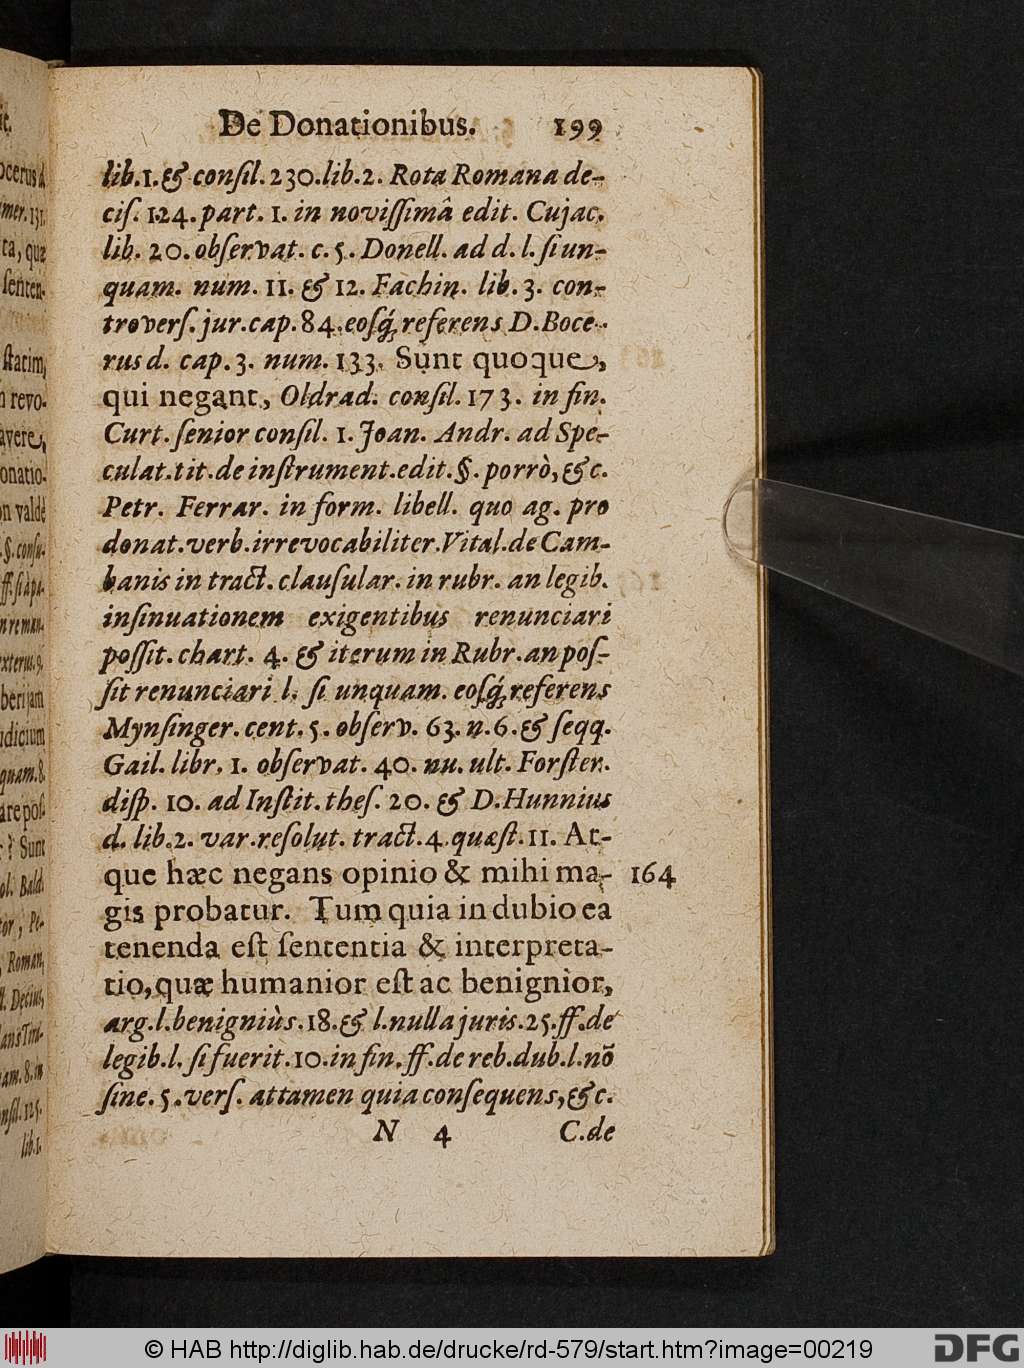 De Donationibus. 199
lib.1.& conſil.230.lib.2. Rota Romana de-
ciſ. 124. part. 1. in noviſſimâ edit. Cujac.
lib. 20. obſervat. c. 5. Donell. ad d. l. ſi un-
quam. num. 11. & 12. Fachin. lib. 3. con-
troverſ. jur. cap. 84. eoſq́; referens D. Boce-
rus d. cap. 3. num. 133. Sunt quoque,
qui negant, Oldrad. conſil. 173. in fin.
Curt. ſenior conſil. 1. Joan. Andr. ad Spe-
culat. tit. de inſtrument. edit. §. porrò, &c.
Petr. Ferrar. in form. libell. quo ag. pro
donat. verb. irrevocabiliter. Vital. de Cam-
banis in tract. clauſular. in rubr. an legib.
inſinuationem exigentibus renunciari
poſſit. chart. 4. & iterum in Rubr. an poſ-
ſit renunciari l. ſi unquam. eoſq́; referens
Mynſinger. cent. 5. obſerv. 63. n. 6. & ſeqq.
Gail. libr. 1. obſervat. 40. nu. ult. Forſter.
diſp. 10. ad Inſtit. theſ. 20. & D. Hunnius
d. lib. 2. var. reſolut. tract. 4. quæſt. 11. At-
que hæc negans opinio & mihi ma- 164
gis probatur. Tum quia in dubio ea
tenenda eſt ſententia & interpreta-
tio, quæ humanior eſt ac benignior,
arg. l. benigniùs. 18. & l. nulla juris. 25. ff. de
legib. l. ſi fuerit. 10. in fin. ff. de reb. dub. l. nõ
ſine. 5. verſ. attamen quia conſequens, &c.
N 4 C. de
ocerus d
mer. 131.
ta, quæ
ſenten-
ſtatim,
n revo-
avere,
onatio-
on valdè
§. conſu-
ff. ſi à pa-
n reman-
exterus. 9.
beri jam
udicium
quam. 8.
are poſ-
? Sunt
ol. Bald.
tor, Pe-
Roman.
ll. Decius,
ans Tira-
am. 8. in
nſil. 125.
lib. 1.
© HAB http://diglib.hab.de/drucke/rd-579/start.htm?image=00219
DFG